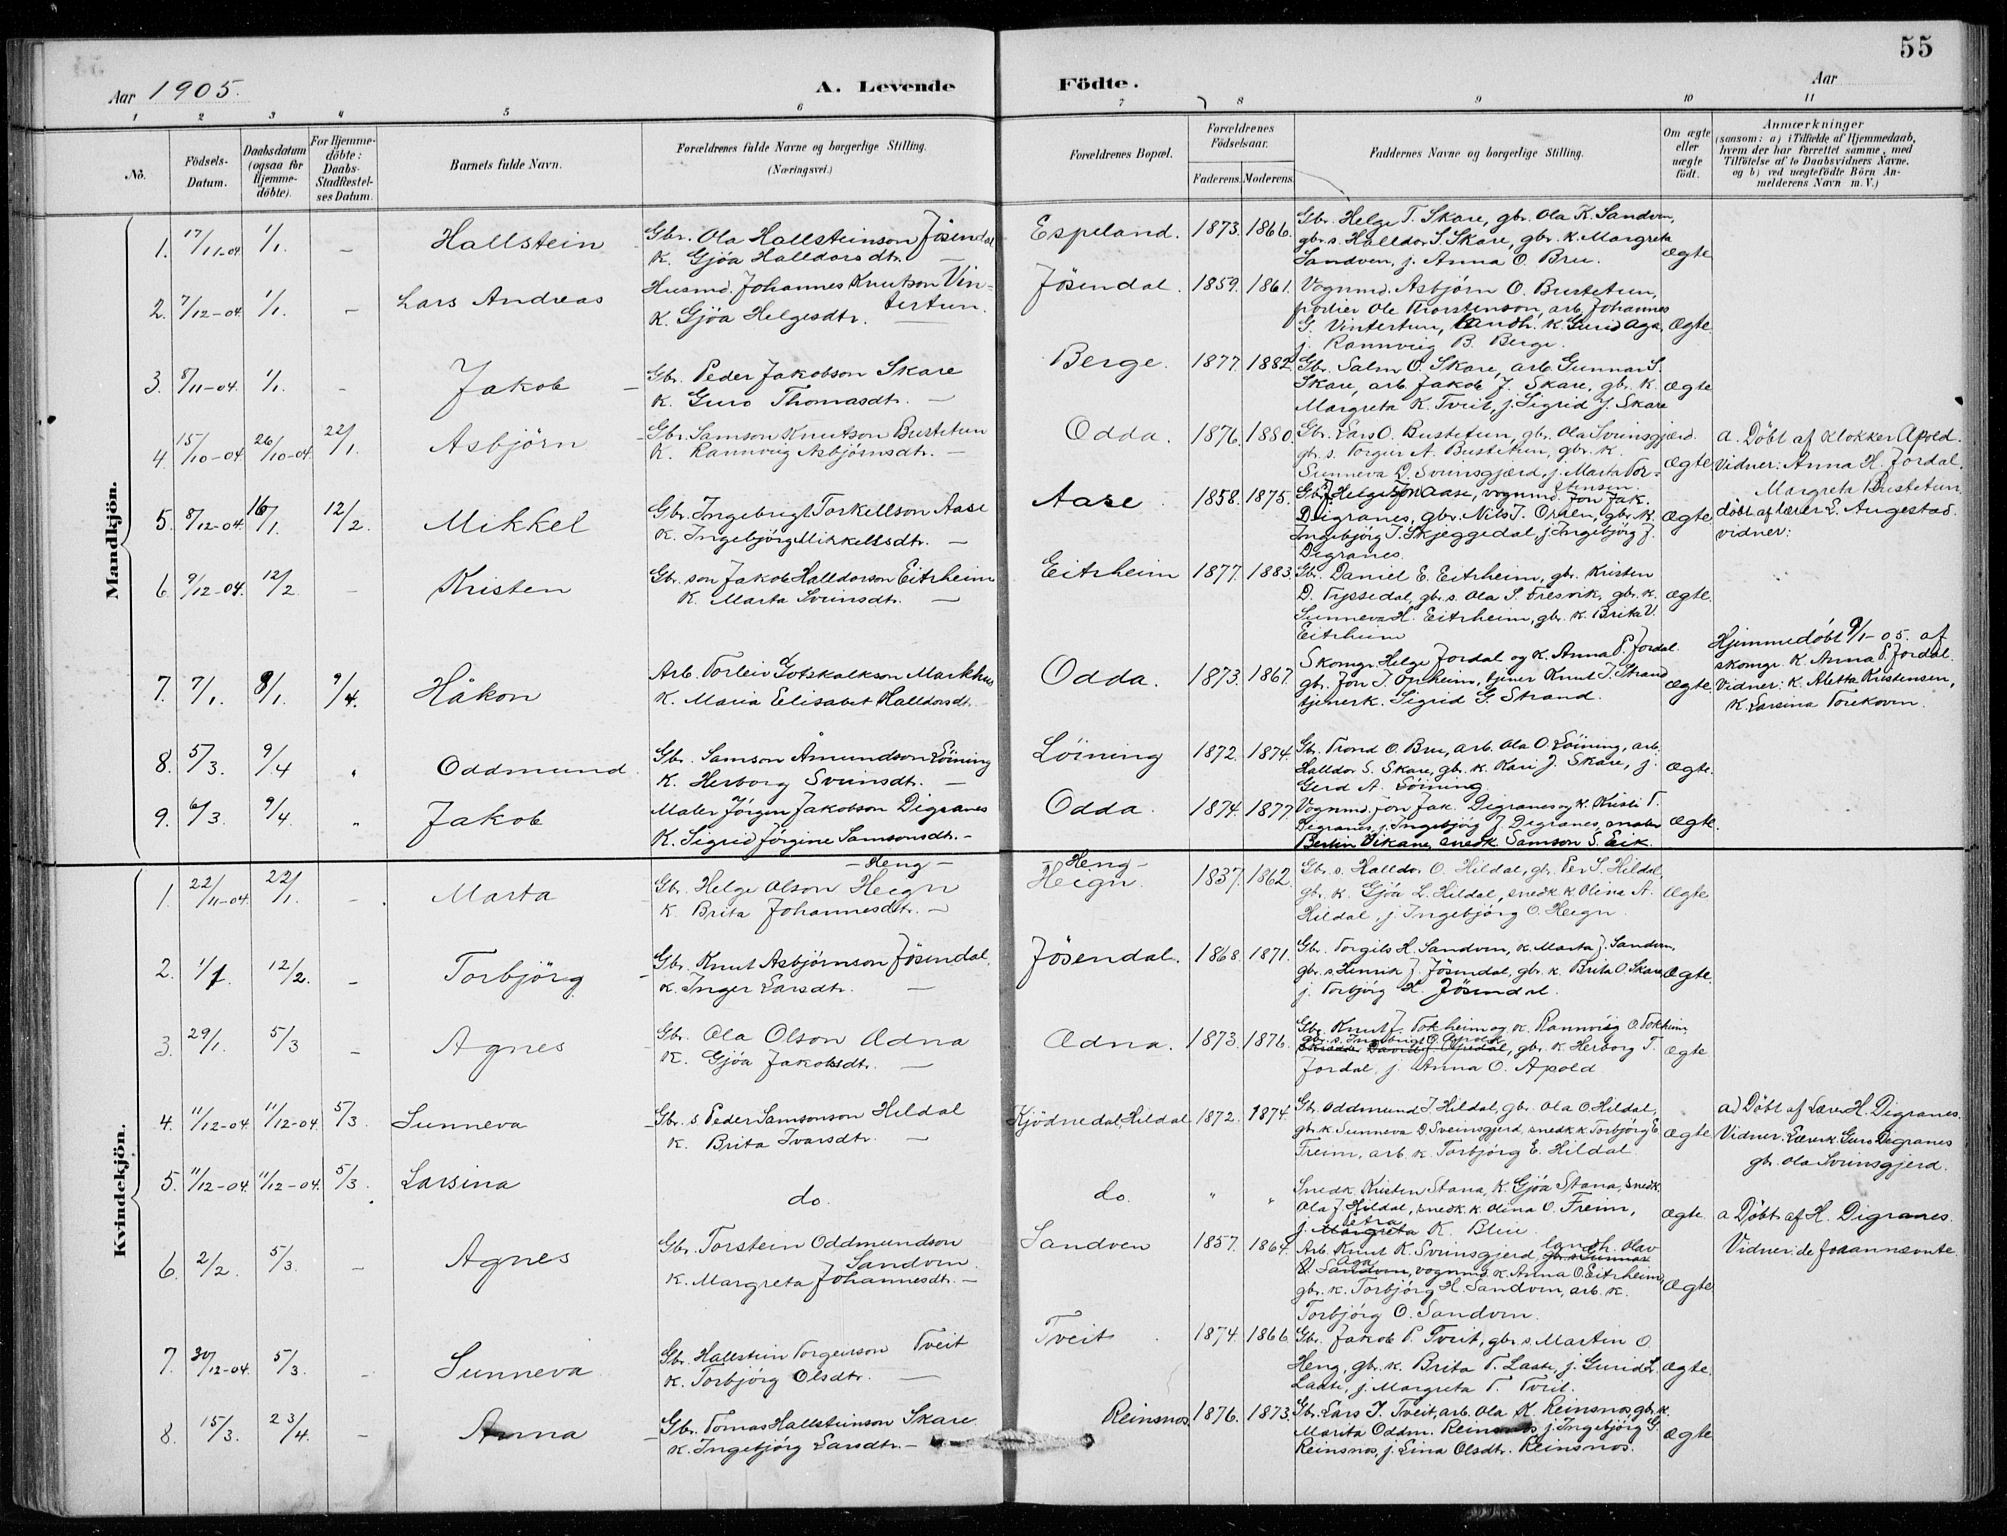 55
Aar 1905.
A. Levende Födte.
Aar
1 2 3 4 5 6 7 8 9 10 11
No.
Födsels-Datum.
Daabsdatum (ogsaa for Hjemme-döbte).
For Hjemme-döbte: Daabs-Stadfæstel-ses Datum.
Barnets fulde Navn.
Forældrenes fulde Navne og borgerlige Stilling. (Næringsvei.)
Forældrenes Bopæl.
Forældrenes Födselsaar.
Faderens. Moderens.
Faddernes Navne og borgerlige Stilling.
Om ægte eller uægte födt.
Anmærkninger
(saasom: a) i Tilfælde af Hjemmedaab,
hvem der har forrettet samme, med
Tilföielse af to Daabsvidners Navne,
og b) ved uægtefödte Börn An-
melderens Navn m. V.)
Mandkjön.
1. 17/11-04 1/1. – Hallstein Gbr. Ola Hallsteinson Jösendal Espeland. 1873. 1866. Gbr. Helge T. Skare, gbr. Ola K. Sandven,
K. Gjöa Halldorsdtr. – gbr. s. Halldor S. Skare, gbr. K. Margreta
Sandven, j. Anna O. Bru. ægte
2. 7/12-04. 1/1. – Lars Andreas Husmd. Johannes Knutson Vin- Jösendal. 1859. 1861. Vognmd. Asbjörn O. Bustetun,
tertun. portier Ole Thorstenson, arb. Johannes
K. Gjöa Helgesdtr. – G. Vintertun, landh. K. Gurid Aga, Ægte.
j. Rannveig B. Berge.
3. 8/11-04. 1/1. – Jakob – Gbr. Peder Jakobson Skare Berge. 1877. 1882. Gbr. Salm. O. Skare, arb. Gunnar S.
K. Guro Thomasdtr. – Skare, arb. Jakob J. Skare, gbr. K. ægte
Margreta K. Tveit, j. Sigrid J. Skare
4. 15/10-04 26/10-04 22/1. Asbjörn – Gbr. Samson Knutson Bustetun Odda. 1876. 1880. Gbr. Lars O. Bustetun, gbr. Ola Svinsgjærd. a. Döbt af klokker Apold.
K. Rannveig Asbjörnsdtr. – gbr. s. Torgeir A. Bustetun, gbr. K. ægte Vidner: Anna H. Jordal,
Sunneva D. Svinsgjærd, j. Marta Tor- Margreta Bustetun
stensen.
5. 8/12-04. 16/1. 12/2. Mikkel Gbr. Ingebrigt Torkellson Aase Aase. 1858. 1875. Gbr. Helge Aase, vognmd. Jon Jak. döbt af lærer E. Augestad.
K. Ingebjörg Mikkelsdtr. – Digranes, gbr. Nils T. gbr. K. ægte vidner:
Ingebjörg T. Skjeggedal, j. Ingebjörg J.
Digranes.
6. 9/12-04. 12/2. – Kristen Gbr. sön Jakob Halldorson Eitrheim Eitrheim 1877. 1883. Gbr. Daniel E. Eitrheim, gbr. Kristen
K. Marta Svinsdtr. – D. Tyssedal, gbr. s. Ola S. Fresvik, gbr. K. ægte.
Sunneva H. Eitrheim, gbr. K. Brita V.
Eitrheim
7. 7/1. 8/1. 9/4. Håkon Arb. Torleiv Gotskalkson Markhus Odda. 1873. 1867. Skomgr. Helge Jordal og K. Anna P. Jordal. Hjemmedöbt 9/1-05. af
K. Maria Elisabet Halldorsdt. gbr. Jon T. tjener Knut J. Strand ægte. skomgr. K. Anna P. Jordal.
tjenerk. Sigrid G. Strand. Vidner: K. Aletta Kristensen,
K. Larsina Torekoven.
8. 5/3. 9/4 „ Oddmund. Gbr. Samson Åmundson Löining Löining 1872. 1874. Gbr. Trond O. Bru, arb. Ola O. Löining, arb.
K. Herborg Svinsdt. – Halldor S. Skare, gbr. K. Kari J. Skare, j. ægte.
Gerd A. Löining
9. 6/3. 9/4. „ Jakob Maler Jörgen Jakobson Digranes Odda. 1874. 1877. Vognmd. Jon Jak. Digranes og K. Kristi T.
K. Sigrid Jörgine Samsonsdt. – Digranes, j. Ingebjörg J. Digranes, maler ægte.
Bertin Vikane, snedk. Samson S. Eik.
Kvindekjön.
1. 22/11-04. 22/1. – Marta – Heng – Heng –
Gbr. Helge Olson Heign Heign. 1837. 1862. Gbr. s. Halldor O. Hildal, gbr. Per S. Hildal,
K. Brita Johannesdtr. – gbr. K. Gjöa L. Hildal, snedk. K. Olina A. Ægte
Hildal, j. Ingebjörg O. Heign.
2. 1/1 12/2. – Torbjörg – Gbr. Knut Asbjörnson Jösendal. Jösendal. 1868. 1871. Gbr. Torgils H. Sandven, K. Marta J. Sandven,
K. Inger Larsdtr. – gbr. s. Henrik J. Jösendal, gbr. K. Brita O. Skare, Ægte.
j. Torbjörg H. Jösendal.
3. 29/1. 5/3 – Agnes Gbr. Ola Olson Ædna Ædna. 1873. 1876. Gbr. Knut J. Tokheim og K. Rannveig O. Tokheim,
K. Gjöa Jakobsdtr. – gbr. s. Ingebrigt O. Apold, gbr. K. Herborg T. ægte
Jordal, j. Anna O. Apold
4. 11/12-04 11/12-04. 5/3. Sunneva – Gbr. s. Peder Samsonson Hildal Kjödnedal, Hildal 1872. 1874. Gbr. Oddmund J. Hildal, gbr. Ola O. Hildal, a) Döbt af Lærer H. Digranes.
K. Brita Ivarsdtr. – gbr. K. Sunneva D. Sveinsgjerd, snedk. K. Torbjörg E. ægte. Vidner: Lærerk. Guro Digranes
Freim, arb. K. Torbjörg E. Hildal. gbr. Ola Svinsgjerd.
5. 11/12-04. 11/12-04. 5/3. Larsina do. do. „ „ Snedk. Kristen Stana, K. Gjöa Stana, snedk.
Ola J. Hildal, snedk. K. Olina O. Freim, ægte. a Döbt af H. Digranes.
j. Margreta K. Vidner: de forannævnte.
6. 2/2. 5/3. – Agnes Gbr. Torstein Oddmundson Sandven 1857. 1864. Arb. Knut K. Svinsgjerd, landh. Olav
Sandven. Aga
K. Margreta Johannesdt. – V. Sandven, vognmd. K. Anna O. Eitrheim,
gbr. K. Torbjörg H. Sandven, arb. K. ægte.
Torbjörg O. Sandven.
7. 30/12-04. 5/3. – Sunneva Gbr. Hallstein Torgeirson Tveit Tveit 1874. 1866 Gbr. Jakob P. Tveit, gbr. s. Martin O.
K. Torbjörg Olsdtr. – Heng, gbr. K. Brita T. Laate, j. Gurid L. ægte.
Laate, j. Margreta T. Tveit.
8. 15/3. 23/4. – Anna – Gbr. Tomas Hallsteinson Skare Reinsnos 1876. 1873. Gbr. Lars J. Tveit, arb. Ola K. Reinsnos gbr. K.
K. Ingebjörg Larsdtr. – Marita Oddm. Reinsnos, j. Ingebjörg G. ægte
Reinsnos, j. Lina Olsdtr. Reinsnos.